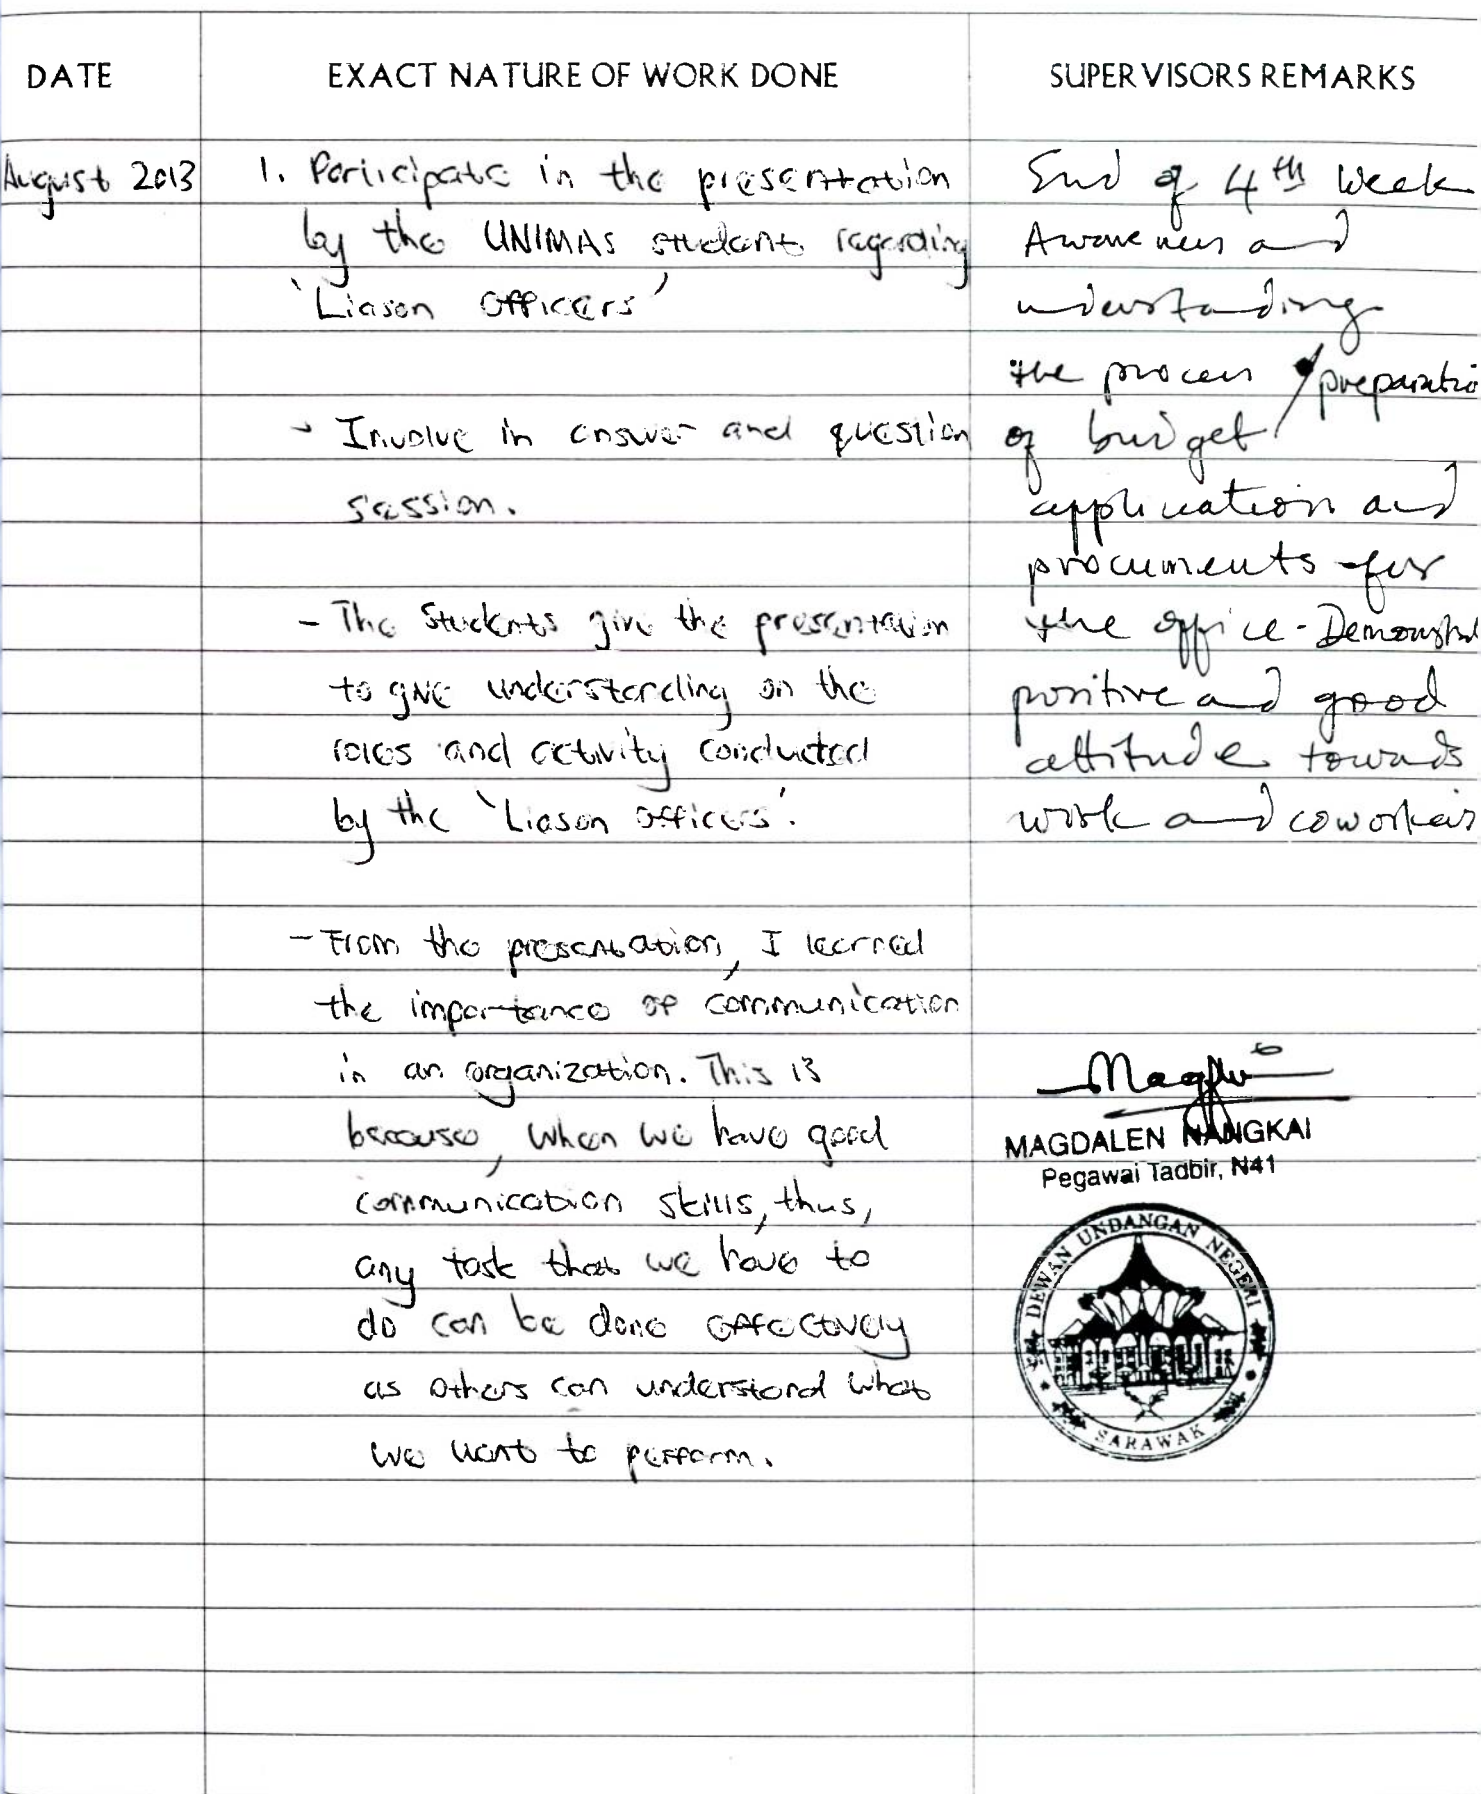 DATE
EXACT NATURE OF WORK DONE
SUPERVISORS REMARKS
August 2013
1. Participate in the presentation
by the UNIMAS student regarding
'Liason Officers'
- Involve in answer and question
session.
- The Students give the presentation
to give understanding on the
roles and activity conducted
by the 'Liason officers'.
- From the presentation, I learned
the importance of communication
in an organization. This is
because, when we have good
communication skills, thus,
any task that we have to
do can be done effectively
as others can understand what
we want to perform.
End of 4th Week
Awareness and
understanding
the process / preparatio
of budget
application and
procuments for
the office - Demonstrat
positive and good
attitude towards
work and coworkers
MAGDALEN NANGKAI
Pegawai Tadbir, N41
DEWAN UNDANGAN NEGERI
SARAWAK